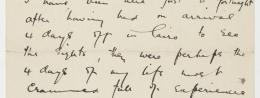 after having had on arrival
4 days off in Cairo to see
the sights, they were perhaps the
4 days of my life most
crammed full of experience